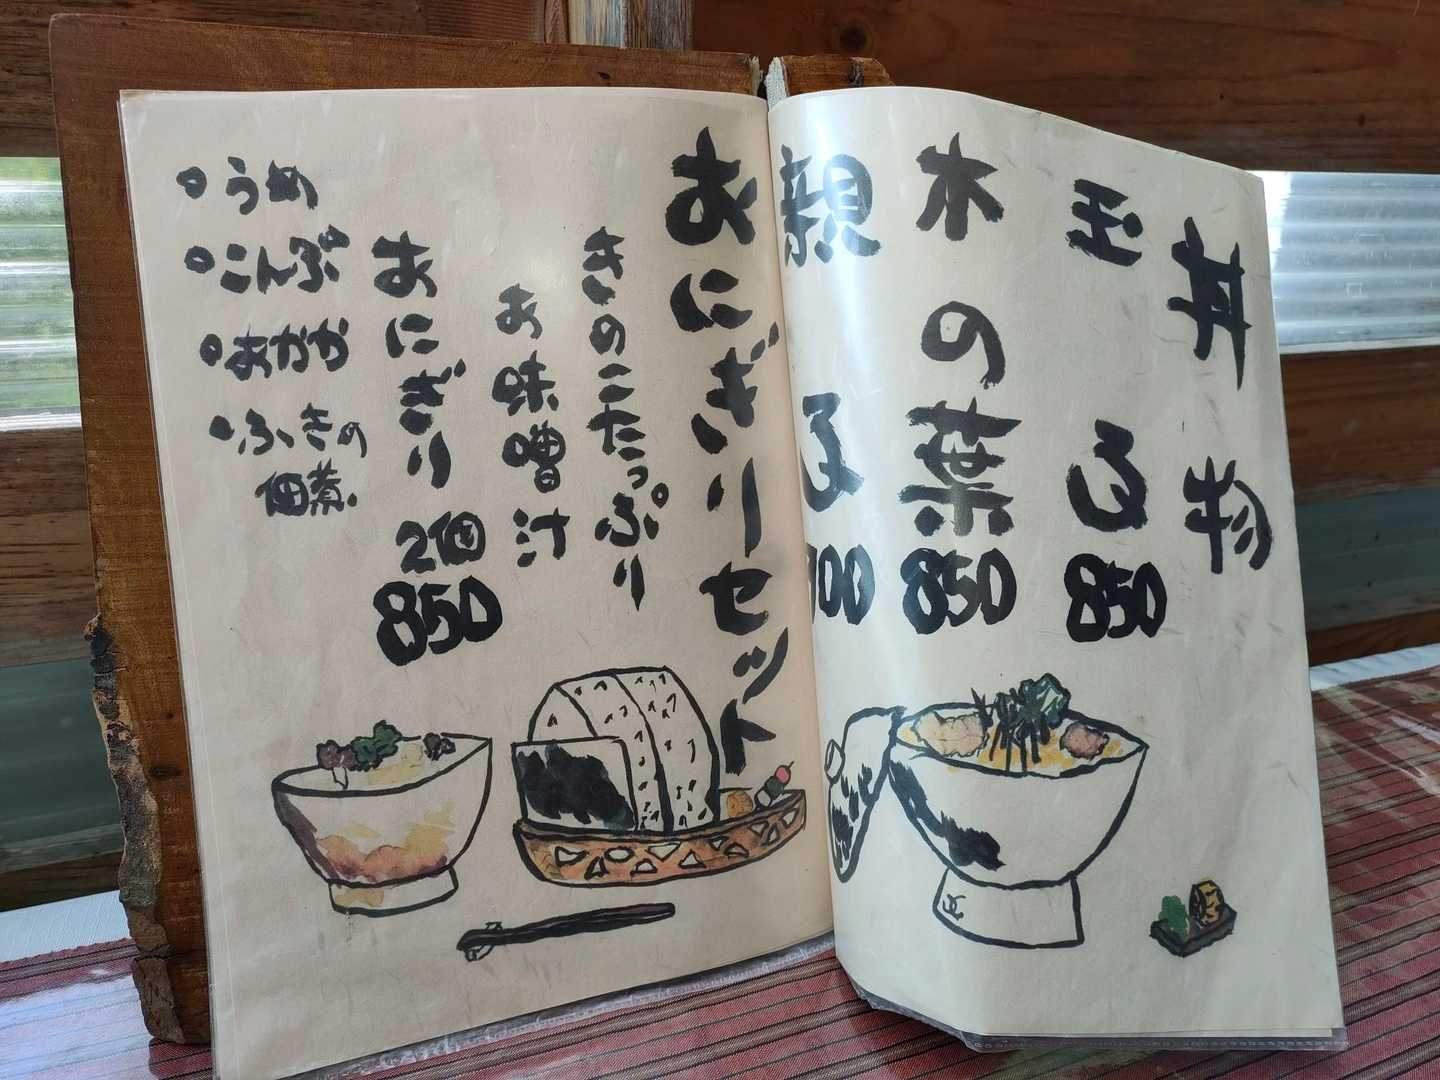 丼物
玉ろ 850
木の葉 850
親子
おにぎりーセット
きのこたっぷり
お味噌汁
おにぎり 2個
850
・うめ
・こんぶ
・おかか
・ふきの
佃煮